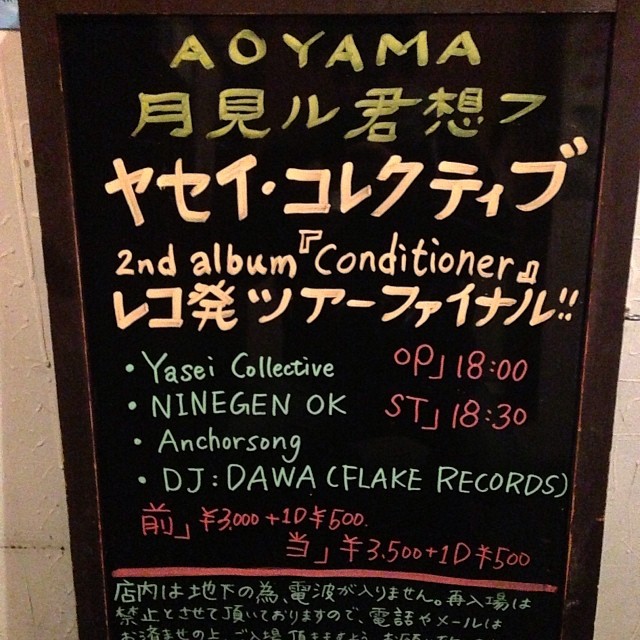 AOYAMA
月見ル君想フ
ヤセイ・コレクティブ
2nd album『Conditioner』
レコ発ツアーファイナル!!
・Yasei Collective OP」18:00
・NINEGEN OK ST」18:30
・Anchorsong
・DJ:DAWA(FLAKE RECORDS)
前」¥3,000+1D¥500.
当」¥3.500+1D¥500
店内は地下の為、電波が入りません。再入場は
禁止とさせて頂いておりますので、電話やメールは
お済ませの上、ご入場頂きますよう、お願い